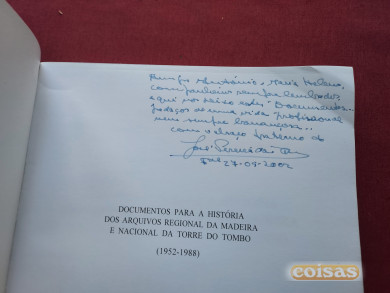 António e Maria Helena,
companheiros sempre lembrados,
aqui vos deixo estes "Documentos",
pedaços de uma vida profissional
nem sempre bonançosa...
com o abraço fraterno do
José Pereira da Costa
27-09-2002
DOCUMENTOS PARA A HISTÓRIA
DOS ARQUIVOS REGIONAL DA MADEIRA
E NACIONAL DA TORRE DO TOMBO
(1952-1988)
coisas